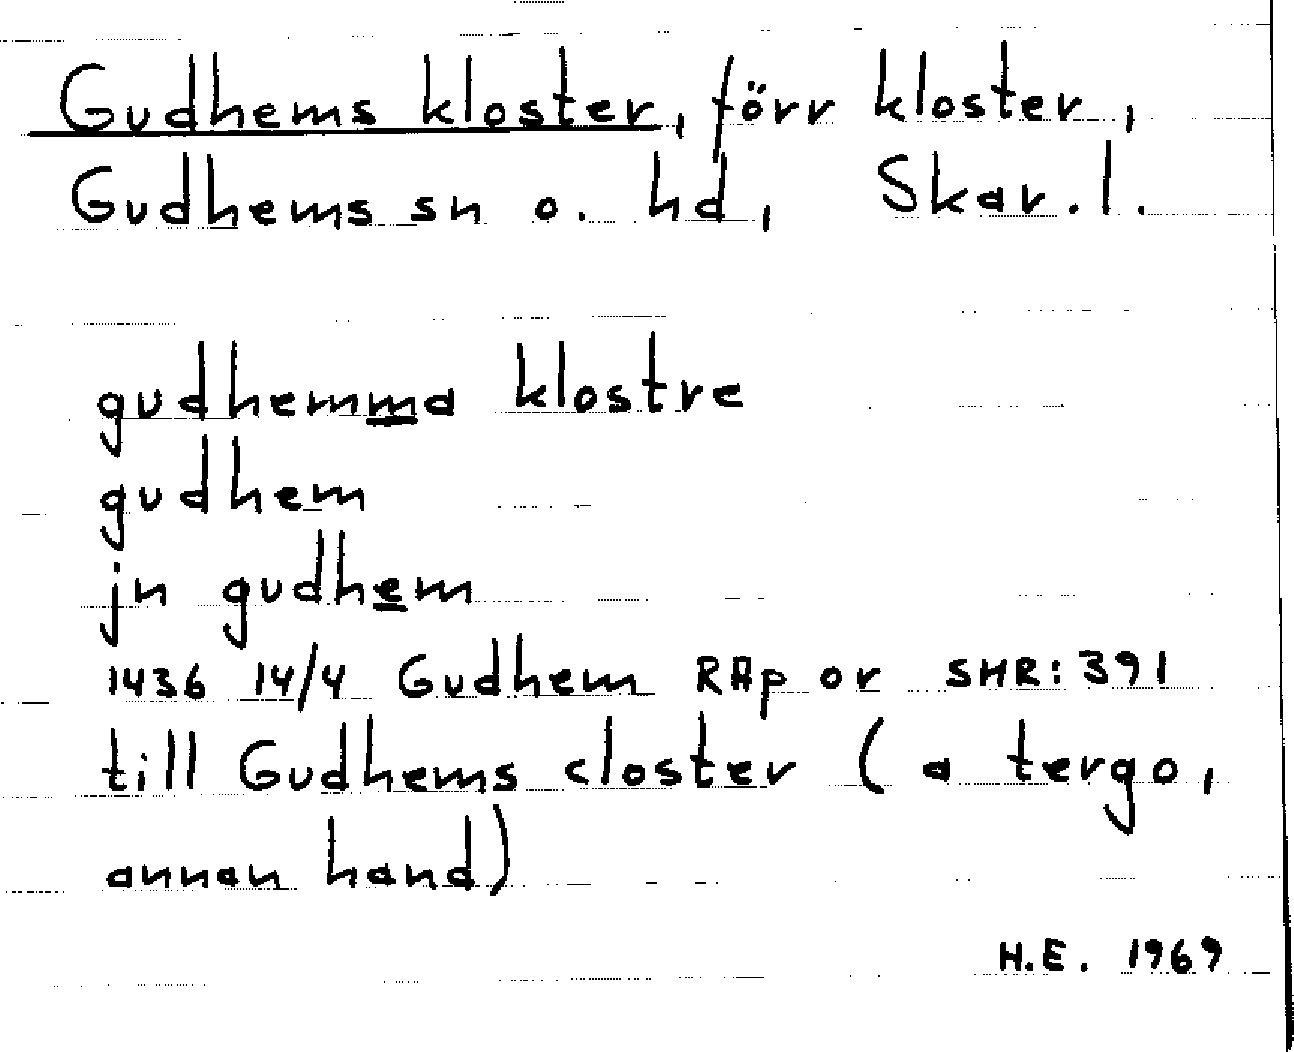 Gudhems kloster, förr kloster,
Gudhems sn o. hd, Skar. l.
gudhemma klostre
gudhem
jn gudhem
1436 14/4 Gudhem RAp or SHR: 391
till Gudhems closter (a tergo,
annan hand)
H.E. 1969